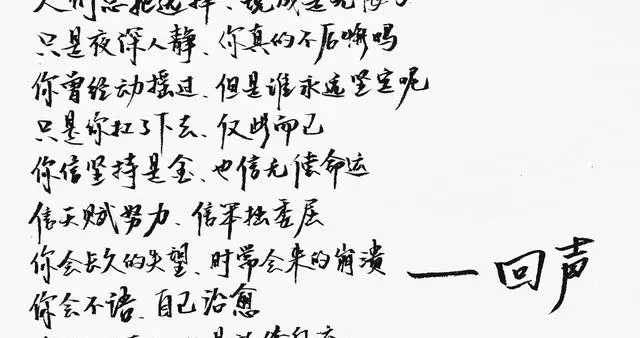 人们总把选择、
只是夜深人静、你真的不后悔吗
你曾经动摇过、但是谁永远坚定呢
只是你扛了下去、仅此而已
你信坚持是金、也信无命运
信天赋努力、信笨拙委屈
你会长久的失望、时常会来的崩溃
你会不语、自己治愈
— 回声